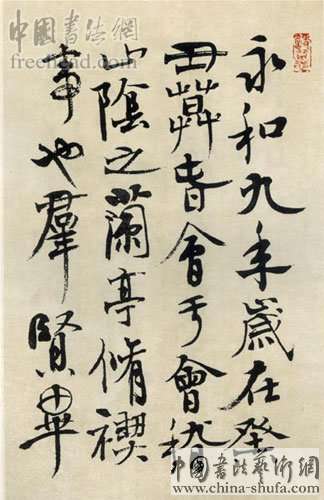 永和九年歲在癸
丑暮春會于會稽
山陰之蘭亭脩禊
事也羣賢畢
中國書法網
freehead.com
中國書法藝術網
www.china-shufa.com